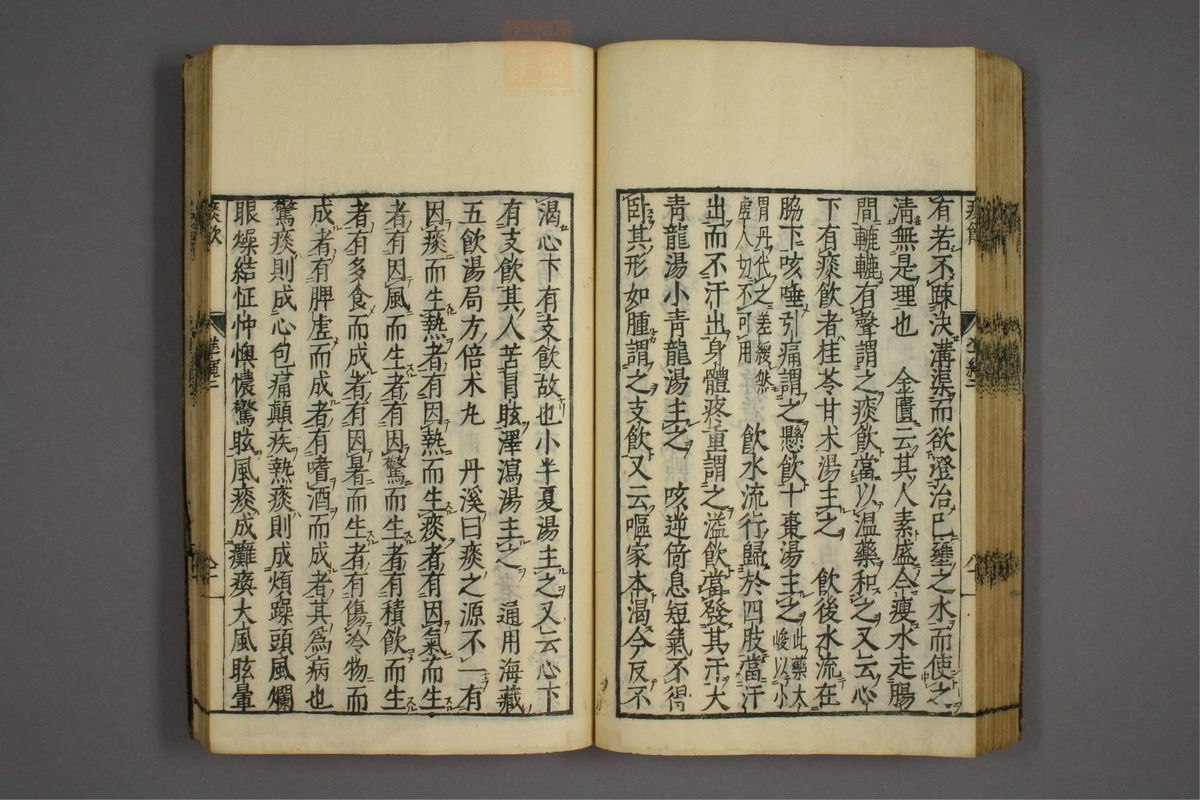 有若不踈决溝渠而欲澄治已壅之水而使之
清無是理也　金匱云其人素盛今瘦水走腸
間轆轆有聲謂之痰飲當以温藥和之又云心
下有痰飲者桂苓甘术湯主之　飲後水流在
脇下咳唾引痛謂之懸飲十棗湯主之此藥太峻以小
胃丹代之差緩然虚人切不可用　飲水流行歸於四肢當汗
出而不汗出身體疼重謂之溢飲當發其汗大
青龍湯小青龍湯主之　咳逆倚息短氣不得
卧其形如腫謂之支飲又云嘔家本渴今反不
渴心下有支飲故也小半夏湯主之又云心下
有支飲其人苦冒眩澤瀉湯主之　通用海藏
五飲湯局方倍术丸　丹溪曰痰之源不一有
因痰而生熱者有因熱而生痰者有因氣而生
者有因風而生者有因驚而生者有積飲而生
者有多食而成者有因暑而生者有傷冷物而
成者有脾虚而成者有嗜酒而成者其為病也
驚痰則成心包痛顛疾熱痰則成煩躁頭風爛
眼燥結怔忡懊憹驚眩風痰成癱瘓大風眩暈
痰飲